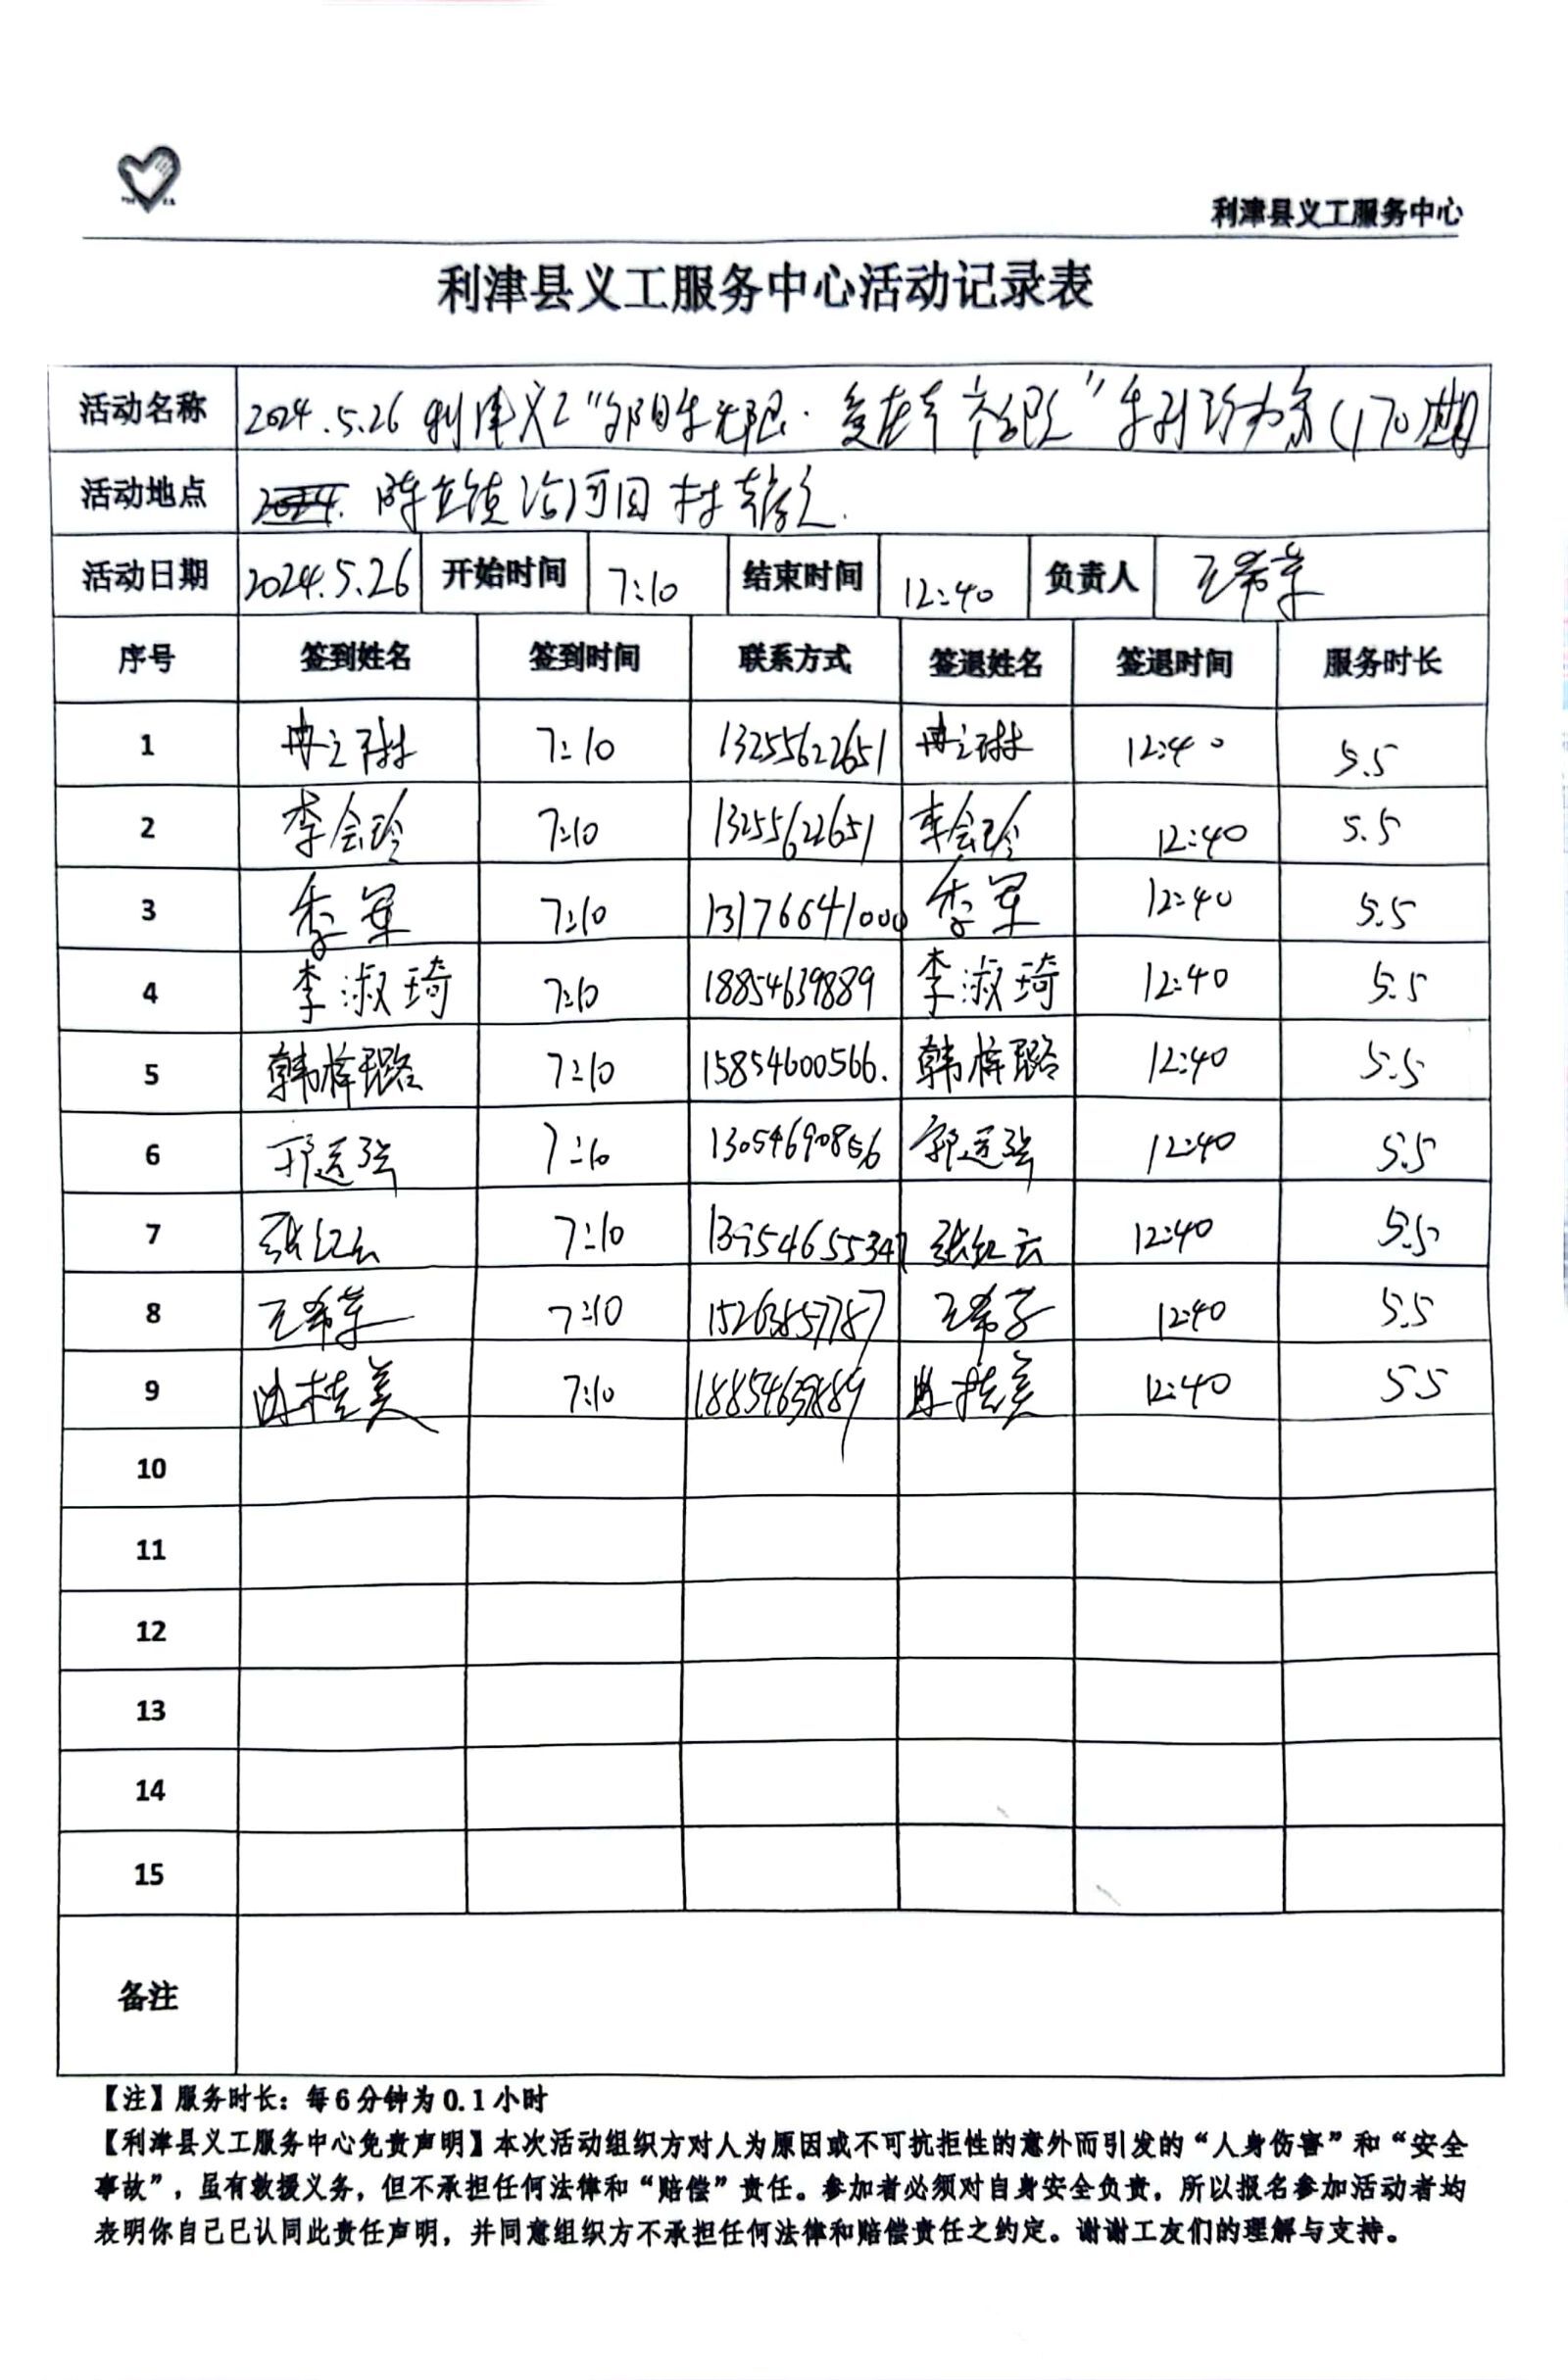 利津县义工服务中心
利津县义工服务中心活动记录表
活动名称 2024.5.26 利津义工“夕阳生无限·爱在” 系列活动(170)期
活动地点 陈庄镇 村
活动日期 2024.5.26 开始时间 7:10 结束时间 12:40 负责人 王希
序号 签到姓名 签到时间 联系方式 签退姓名 签退时间 服务时长
1 7:10 13255622651 12:40 5.5
2 李会玲 7:10 13255622651 李会玲 12:40 5.5
3 李军 7:10 13176641000 李军 12:40 5.5
4 李淑琦 7:10 18854639889 李淑琦 12:40 5.5
5 韩梓璐 7:10 15854600566. 韩梓璐 12:40 5.5
6 7:10 12:40 5.5
7 张红云 7:10 13954655347 张红云 12:40 5.5
8 王希 7:10 15263857787 王希 12:40 5.5
9 桂美 7:10 18854639889 桂美 12:40 5.5
10
11
12
13
14
15
备注
【注】服务时长：每6分钟为0.1小时
【利津县义工服务中心免责声明】本次活动组织方对人为原因或不可抗拒性的意外而引发的“人身伤害”和“安全
事故”，虽有救援义务，但不承担任何法律和“赔偿”责任。参加者必须对自身安全负责，所以报名参加活动者均
表明你自己已认同此责任声明，并同意组织方不承担任何法律和赔偿责任之约定。谢谢工友们的理解与支持。